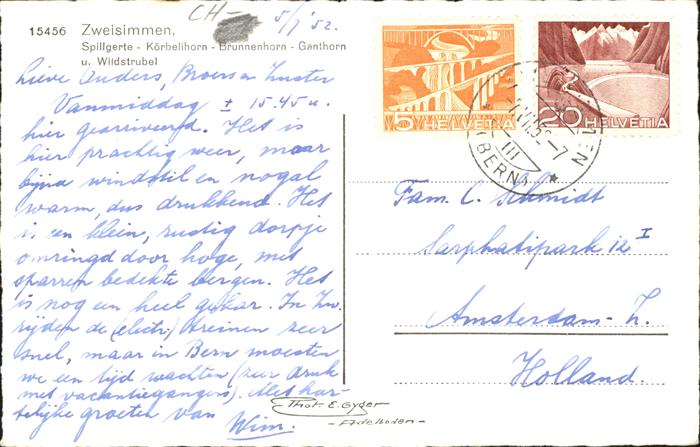 CH- 5/7 '52.
15456 Zweisimmen,
Spillgerte - Körbelihorn - Brunnenhorn - Ganthorn
u. Wildstrubel
Lieve Ouders, Broers en Zuster
Vanmiddag ± 15.45 u.
hier gearriveerd. Het is
hier prachtig weer, maar
bijna windstil en nogal
warm, dus drukkend. Het
is een klein, rustig dorpje
omringd door hoge, met
sparren bedekte bergen. Het
is nog een heel gebar. In Zw.
rijden de (electr.) treinen zeer
snel, maar in Bern moesten
we een tijd wachten (zeer druk
met vacantiegangers). Met har-
telijke groeten van
Wim.
Phot. E. Gyger
- Adelboden -
5 HELVETIA
20 HELVETIA
(BERN)
Fam. C. Schmidt
Sarphatipark 12 I
Amsterdam-Z.
Holland.